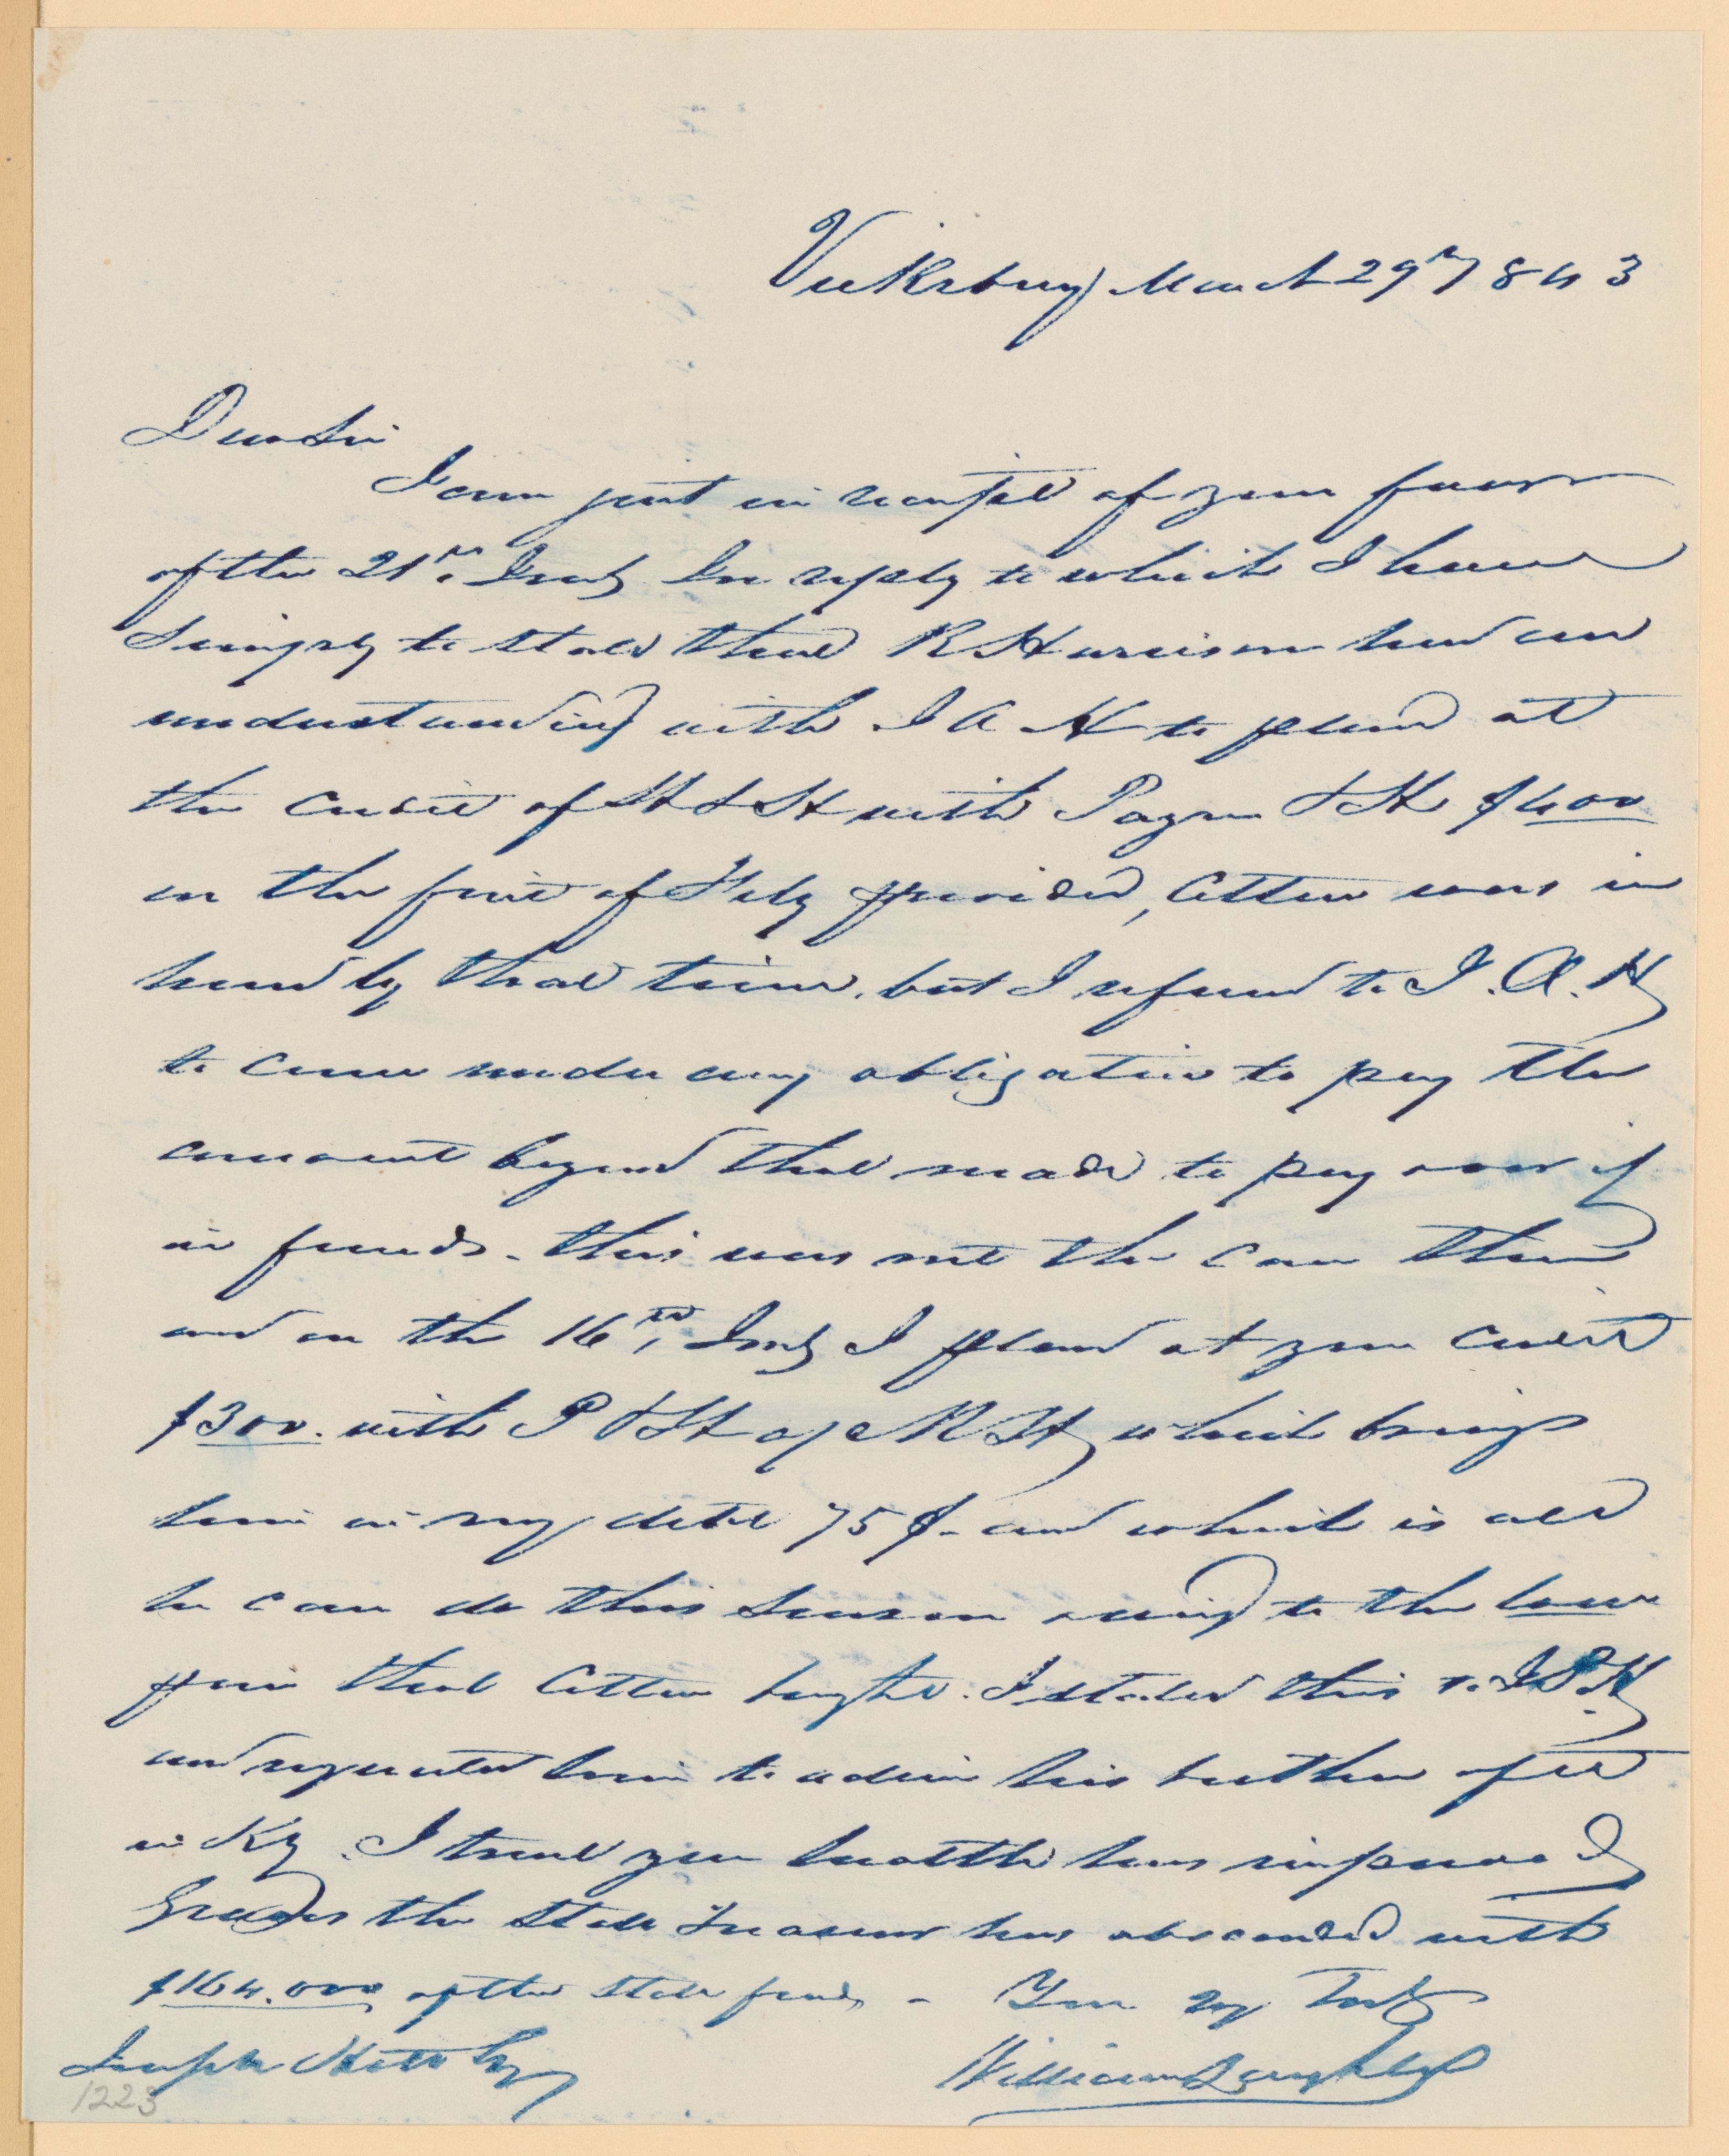 Vicksburg March 29th 1843
Dear Sir
I am just in receipt of your favor
of the 21st Inst, In reply to which I have
Simply to state that R Harrison had an
understanding with J A H to place at
the credit of H & H with Payne & H $400
on the first of Feby provided, Cotton was in
hand by that time, but I refused to J. A. H
to come under any obligation to pay the
amount beyond that made to pay over if
in funds - this was not the case then
and on the 16th, Inst I placed at your credit
$300. with P & H of R H, which brings
him in my debt 75$ - and which is all
he can do this Season owing to the low
price that Cotton brought. I stated this to J P. H
and requested him to advise his brother of it
in Ky. I trust your health has improved
Graves the State Treasurer has absconded with
$164.000 of the State funds - Your
William Laughlin
Joseph Esq
1223